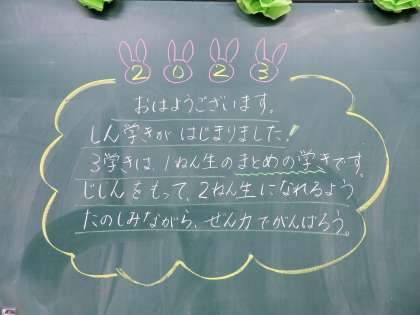 2023
おはようございます。
しん学きが はじまりました!
3学きは、1ねん生のまとめの学きです。
じしんをもって、2ねん生になれるよう
たのしみながら、ぜん力でがんばろう。